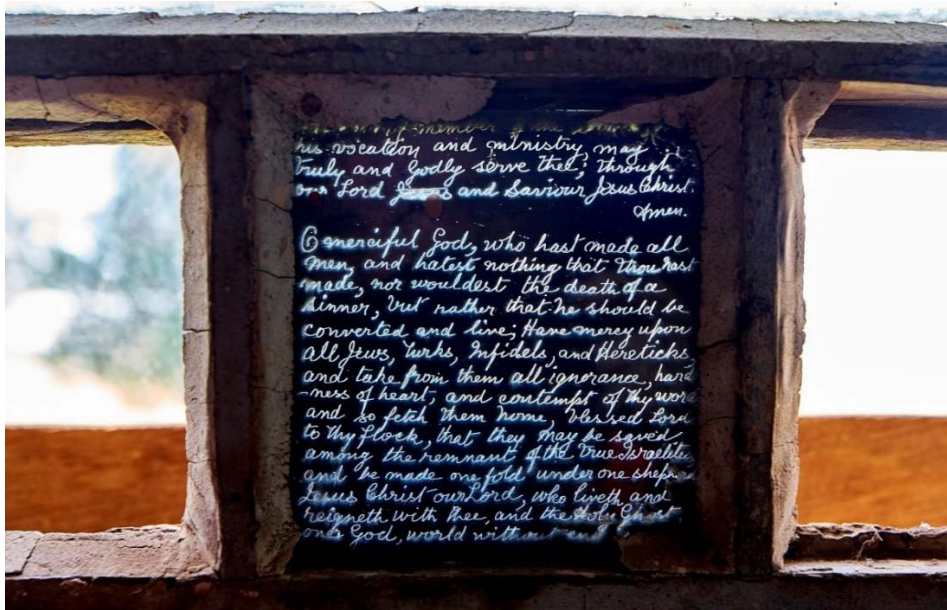 member of the
his vocation and ministry, may
truly and Godly serve thee; through
our Lord Jesus and Saviour Jesus Christ.
Amen.
O merciful God, who hast made all
men, and hatest nothing that Thou hast
made, nor wouldest the death of a
sinner, but rather that he should be
converted and live; Have mercy upon
all Jews, Turks, Infidels, and Hereticks,
and take from them all ignorance, hard
-ness of heart, and contempt of Thy word
and so fetch them home, blessed Lord
to Thy flock, that they may be saved
among the remnant of the true Israelites
and be made one fold under one
Jesus Christ our Lord, who liveth and
reigneth with thee, and the Holy Ghost,
one God, world without end